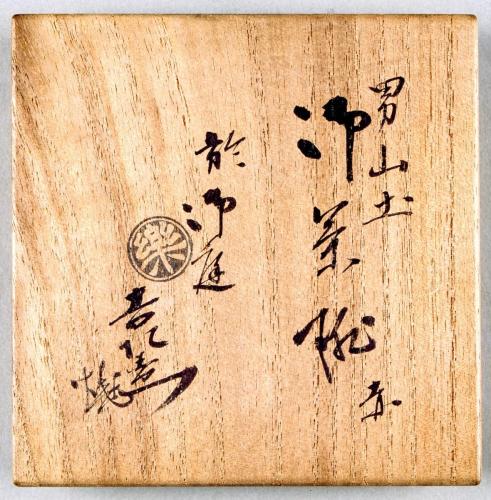 男山土
御茶碗 赤
於御庭
樂
吉左衛門
焼